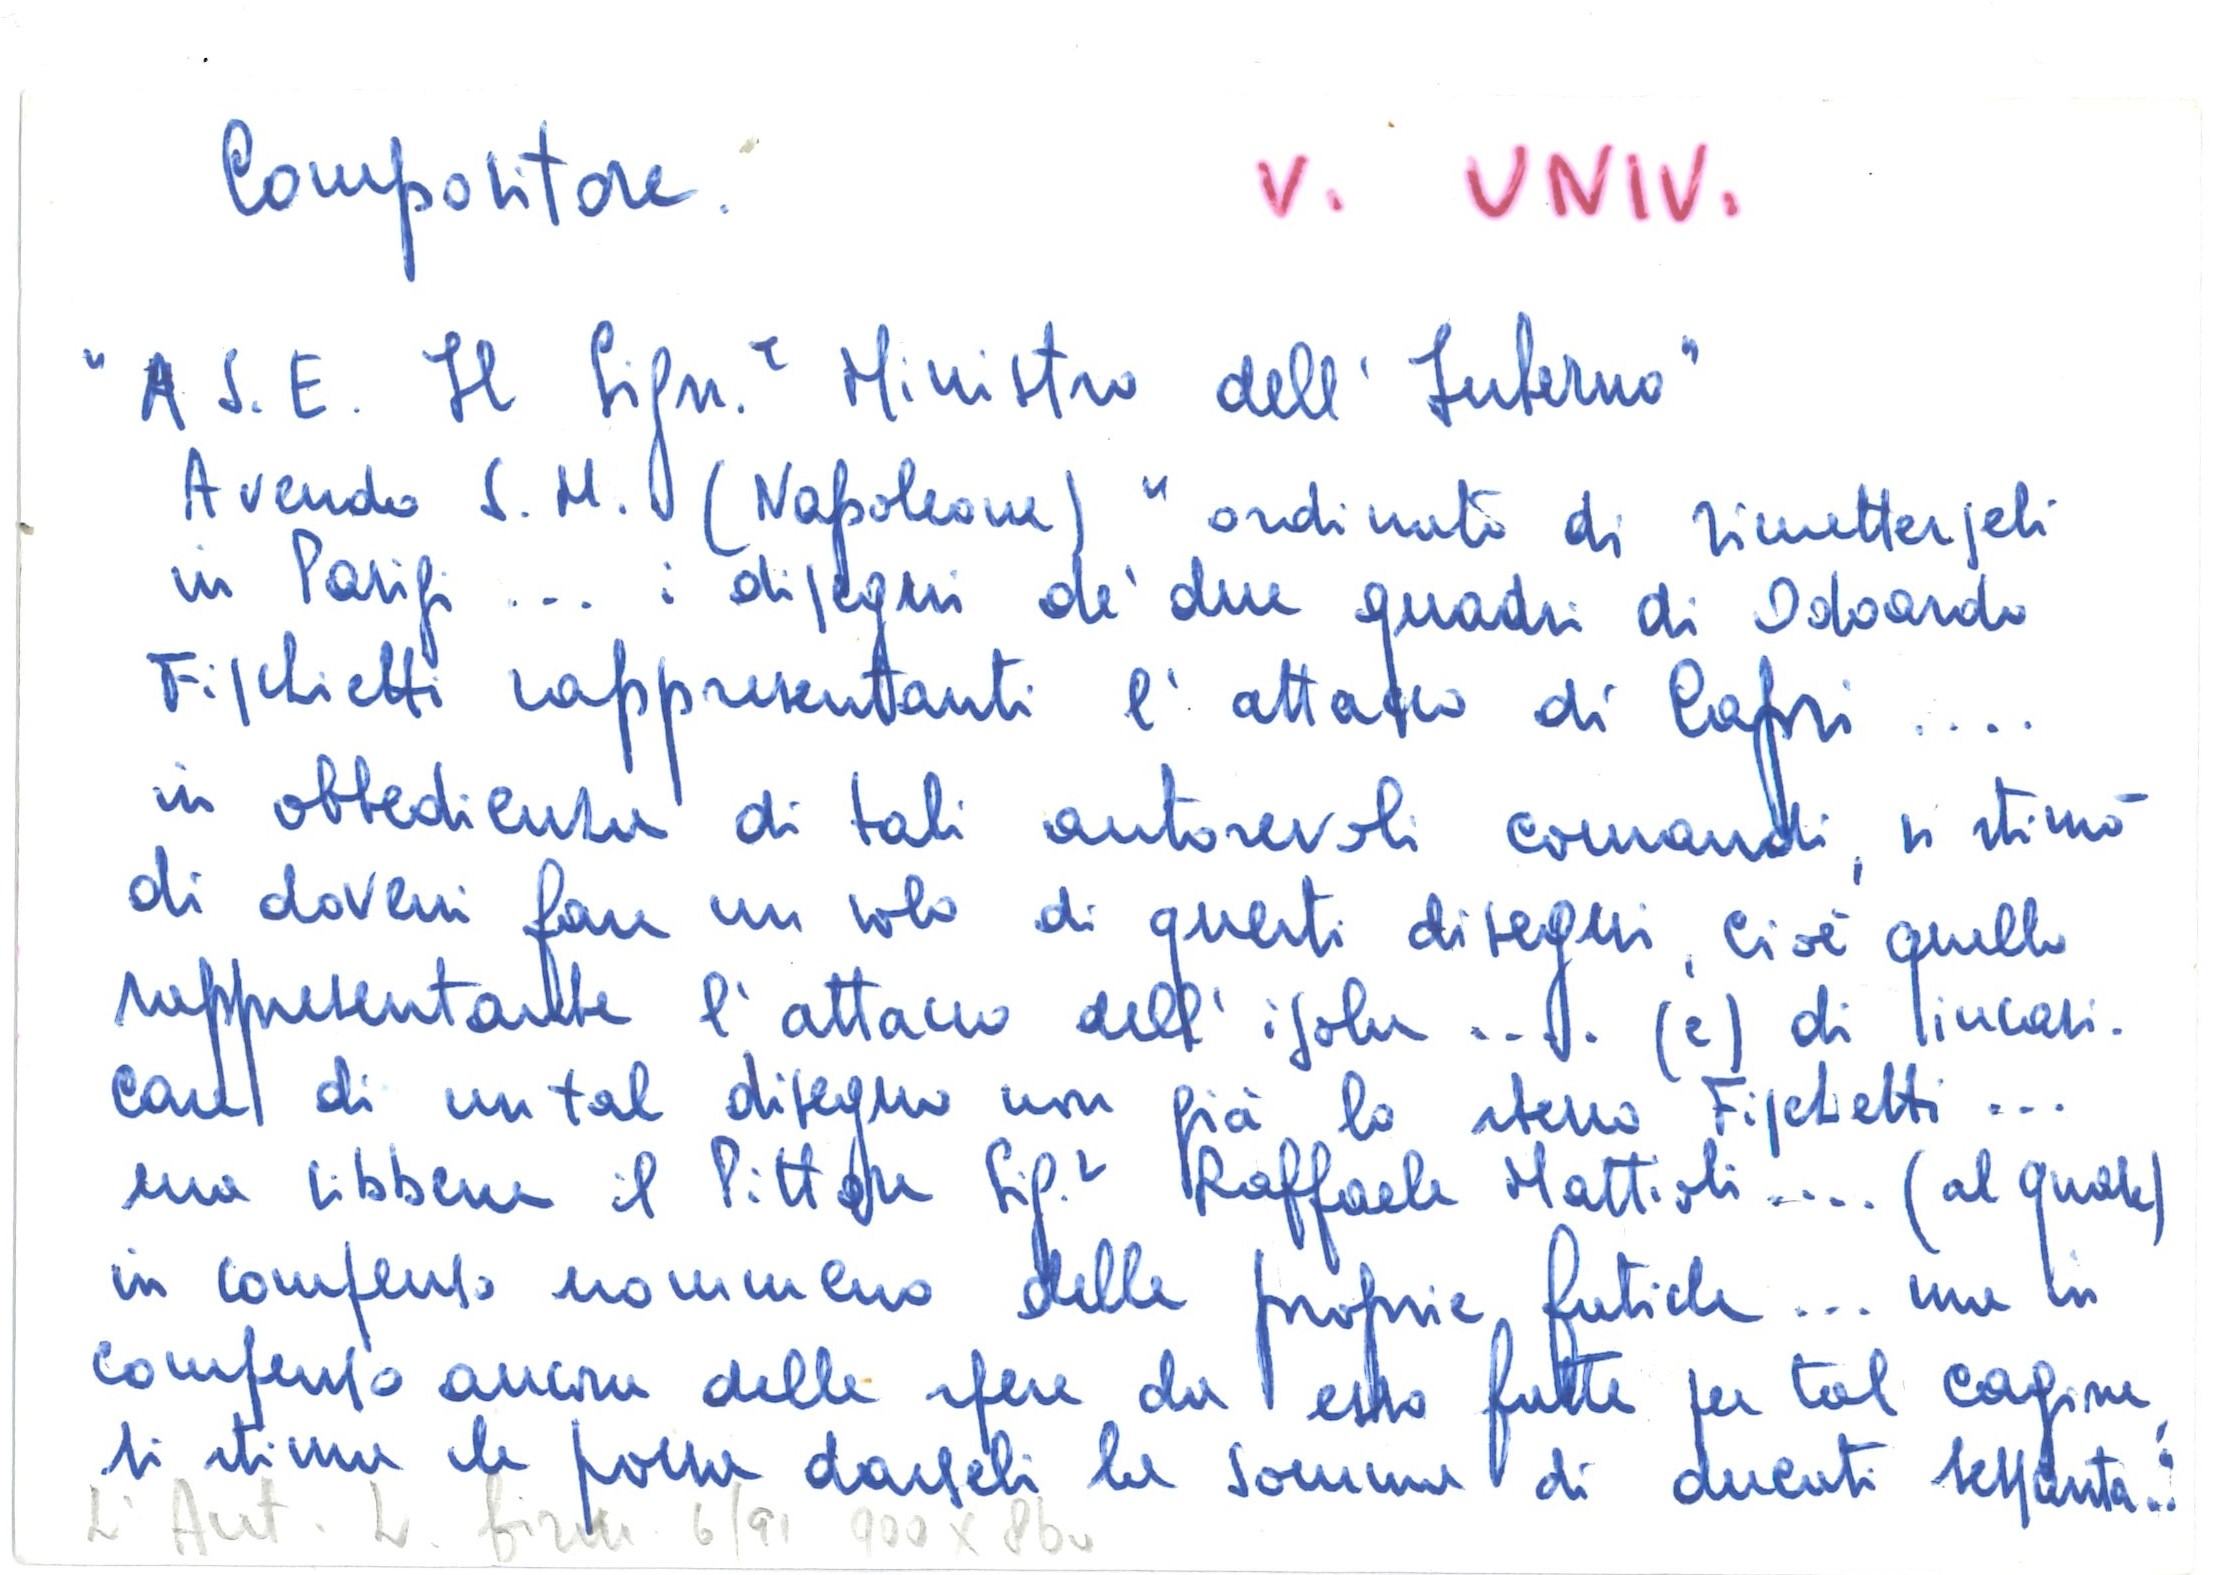 Compositore. V. UNIV.
"A S. E. Il Sign.r Ministro dell'Interno"
Avendo S. M. (Napoleone) "ordinato di rimetterseli
in Parigi ... i disegni de' due quadri di Odoardo
Fischietti rappresentanti l'attacco di Capri ....
in obbedienza di tali autorevoli comandi, si stimò
di doversi fare un solo di questi disegni, cioè quello
rappresentante l'attacco dell'isola .... (e) di incari-
care di un tal disegno non già lo stesso Fischetti ...
ma sibbene il Pittore Sig.r Raffaele Mattioli .... (al quale)
in compenso nommeno delle proprie fatiche ... ma in
compenso ancora delle spese da esso fatte per tal cagione,
si stima che possa darseli la somma di ducati sessanta..."
L'Aut. L. 6/91 900 x